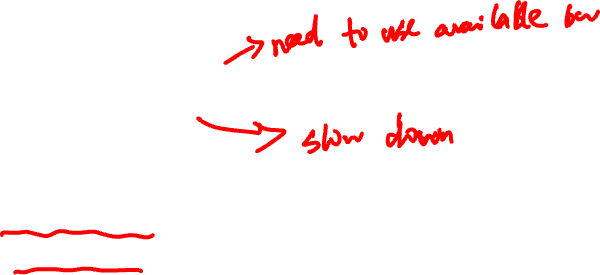 need to use available
slow down